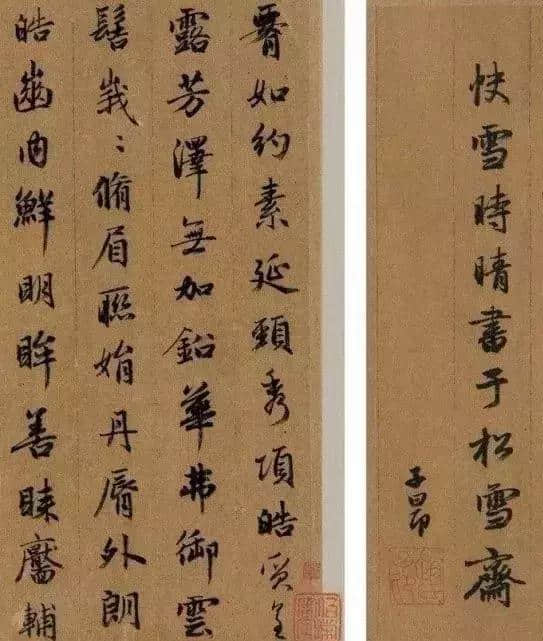 快雪時晴書于松雪齋
子昂
腰如約素延頸秀項皓質呈
露芳澤無加鉛華弗御雲
髻峩〻脩眉聯娟丹脣外朗
皓齒內鮮明眸善睞靨輔